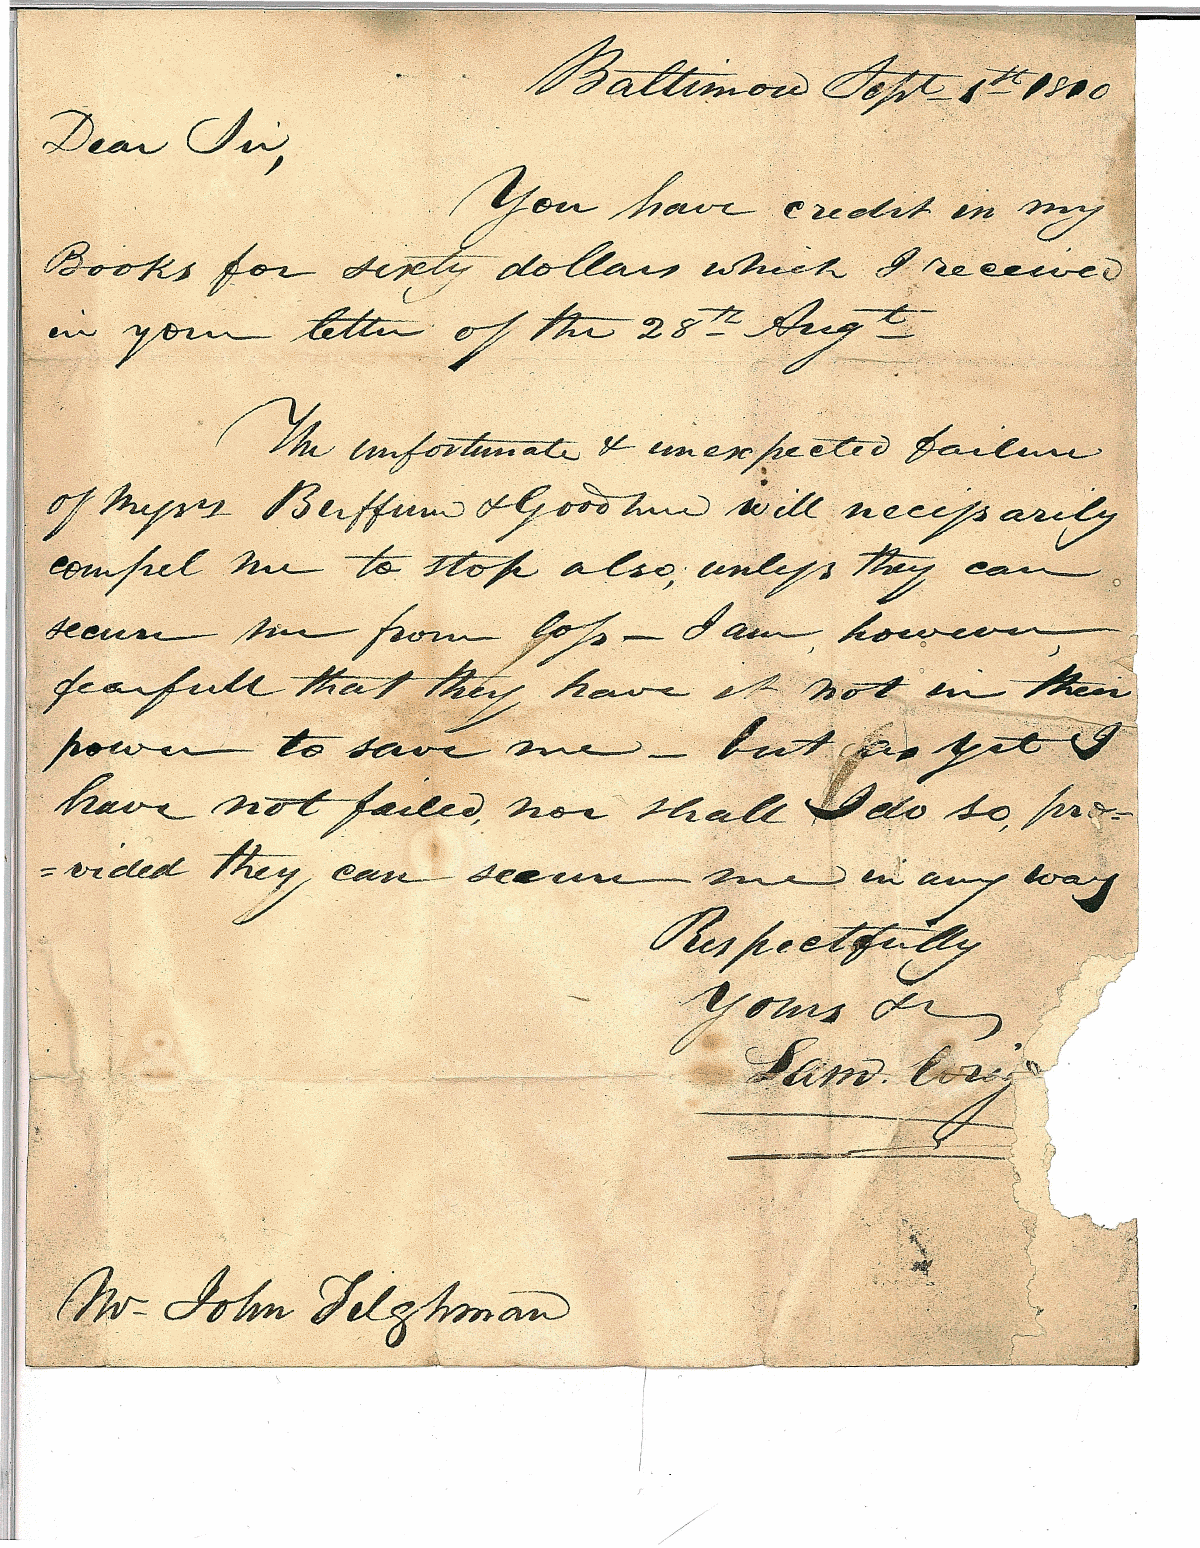 Baltimore Sept 1st 1810
Dear Sir,
You have credit in my
Books for sixty dollars which I received
in your letter of the 28th Augt
The unfortunate & unexpected failure
of Messrs Buffum & Goodhue will necessarily
compel me to stop also, unless they can
secure me from loss — I am, however,
fearfull that they have it not in their
power to save me — but as yet I
have not failed, nor shall I do so, pro=
=vided they can secure me in any way
Respectfully
Yours &c
Saml.
Mr John Tilghman